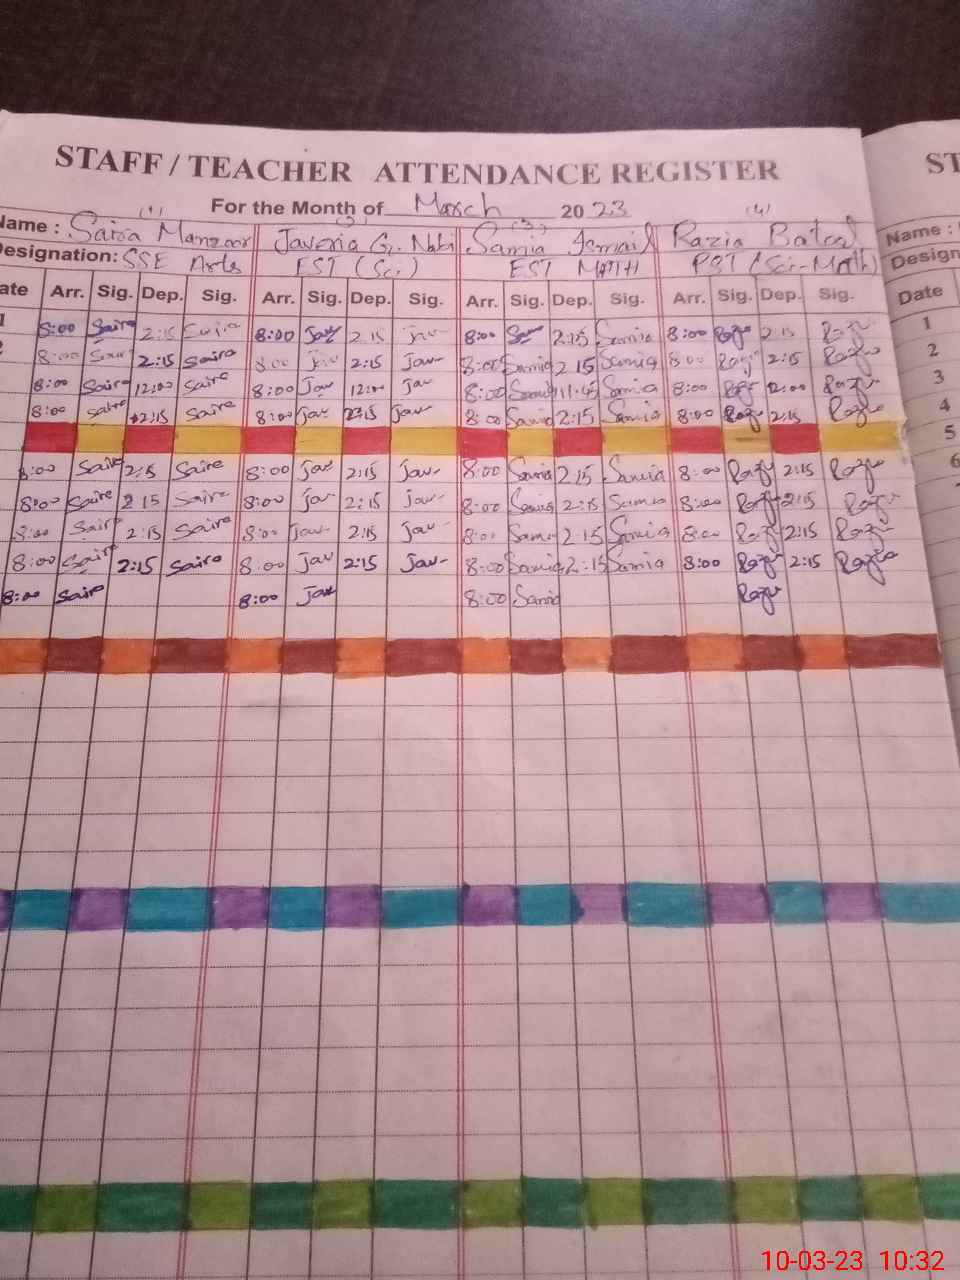 STAFF / TEACHER ATTENDANCE REGISTER ST
For the Month of March 2023
(1) (2) (3) (4)
Name : Saira Manzoor Javeria G. Nabi Samia Ismail Razia Batool Name :
Designation: SSE Arts EST (Sci) EST MATH PST (Sci-Math) Design
ate Arr. Sig. Dep. Sig. Arr. Sig. Dep. Sig. Arr. Sig. Dep. Sig. Arr. Sig. Dep. Sig. Date
1 8:00 Saira 2:15 Saira 8:00 Jav 2:15 Jav 8:00 Sam 2:15 Samia 8:00 2:15 1
2 8:00 Saira 2:15 Saira 8:00 Jav 2:15 Jav 8:00 Samia 2:15 Samia 8:00 2:15 2
8:00 Saira 12:00 Saire 8:00 Jav 12:00 Jav 8:00 Samia 11:45 Samia 8:00 12:00 3
8:00 Saire 2:15 Saire 8:00 Jav 2:15 Jav 8:00 Samia 2:15 Samia 8:00 2:15 4
5
8:00 Saire 2:15 Saire 8:00 Jav 2:15 Jav 8:00 Samia 2:15 Samia 8:00 2:15 6
8:00 Saire 2:15 Saire 8:00 Jav 2:15 Jav 8:00 Samia 2:15 Samia 8:00 2:15
8:00 Saire 2:15 Saire 8:00 Jav 2:15 Jav 8:00 Samia 2:15 Samia 8:00 2:15
8:00 Saire 2:15 Saire 8:00 Jav 2:15 Jav 8:00 Samia 2:15 Samia 8:00 2:15
8:00 Saire 8:00 Jav 8:00 Samia
10-03-23 10:32